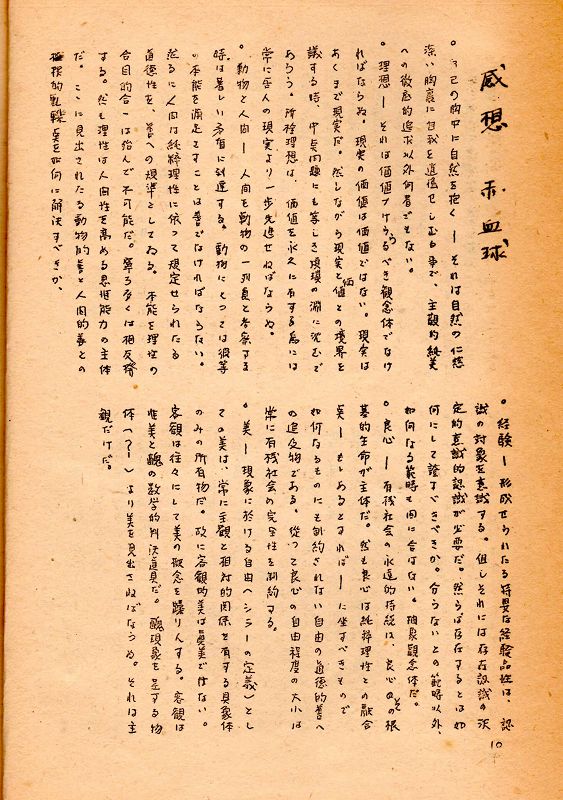 感想 赤血球
。己の胸中に自然を抱く ― それは自然の仁慈
深い胸裏に自我を道徳せしむる事で、主観的純美
への徹底的追求以外何者でもない。
。理想 ― それは価値づけうるべき観念体でなけ
ればならぬ。現実の価値は価値ではない。現実は
あくまで現実だ。然しながら現実と価値との境界を
議する時、中点問題にも等しき壊壊の淵に沈むで
あろう。所詮理想は、価値を永久に有する為には
常に吾人の現実より一歩先進せねばならぬ。
。動物と人間 ― 人間を動物の一列員と考察する
時は著しい矛盾に到達する。動物にとつては彼等
の本能を満足さすことは善でなければならない。
然るに人間は純粋理性に依つて規定せられたる
道徳性を、善への規準としてゐる。本能と理性の
合目的合一は殆んど不可能だ。寧ろ多くは相反撥
する。然も理性は人間性を高める思惟能力の主体
だ。こゝに見出されたる動物的善と人間的善との
を如何に解決すべきか。
。経験 ― 形成せられたる特要な経験品性は、認
識の対象を意識する。但しそれには存在認識の決
定的意識的認識が必要だ。然らば存在するとは如
何にして證すべきか。分らないとの範疇以外、
如何なる範疇も間に合はない。抽象観念体だ。
。良心 ― 有機社会の永遠的持続は、良心その根
基的生命が主体だ。然も良心は純粋理性との融合
美 ― もしあるとすれば ― に坐すべきもので
如何なるものにも制約されない自由の道徳的善へ
の追及物である。従つて良心の自由程度の大小は
常に有機社会の完全性を制約する。
。美 ― 現象に於ける自由へシラーの定義）とし
ての美は、常に主観と相対的関係を有する具象体
のみの所有物だ。故に客観的美は真美ではない。
客観は往々にして美の概念を蹂りんする。客観は
唯美と醜の数学的判決道具だ。醜現象を呈する物
体へ？ー）より美を見出さねばならぬ。それは主
観だけだ。
10